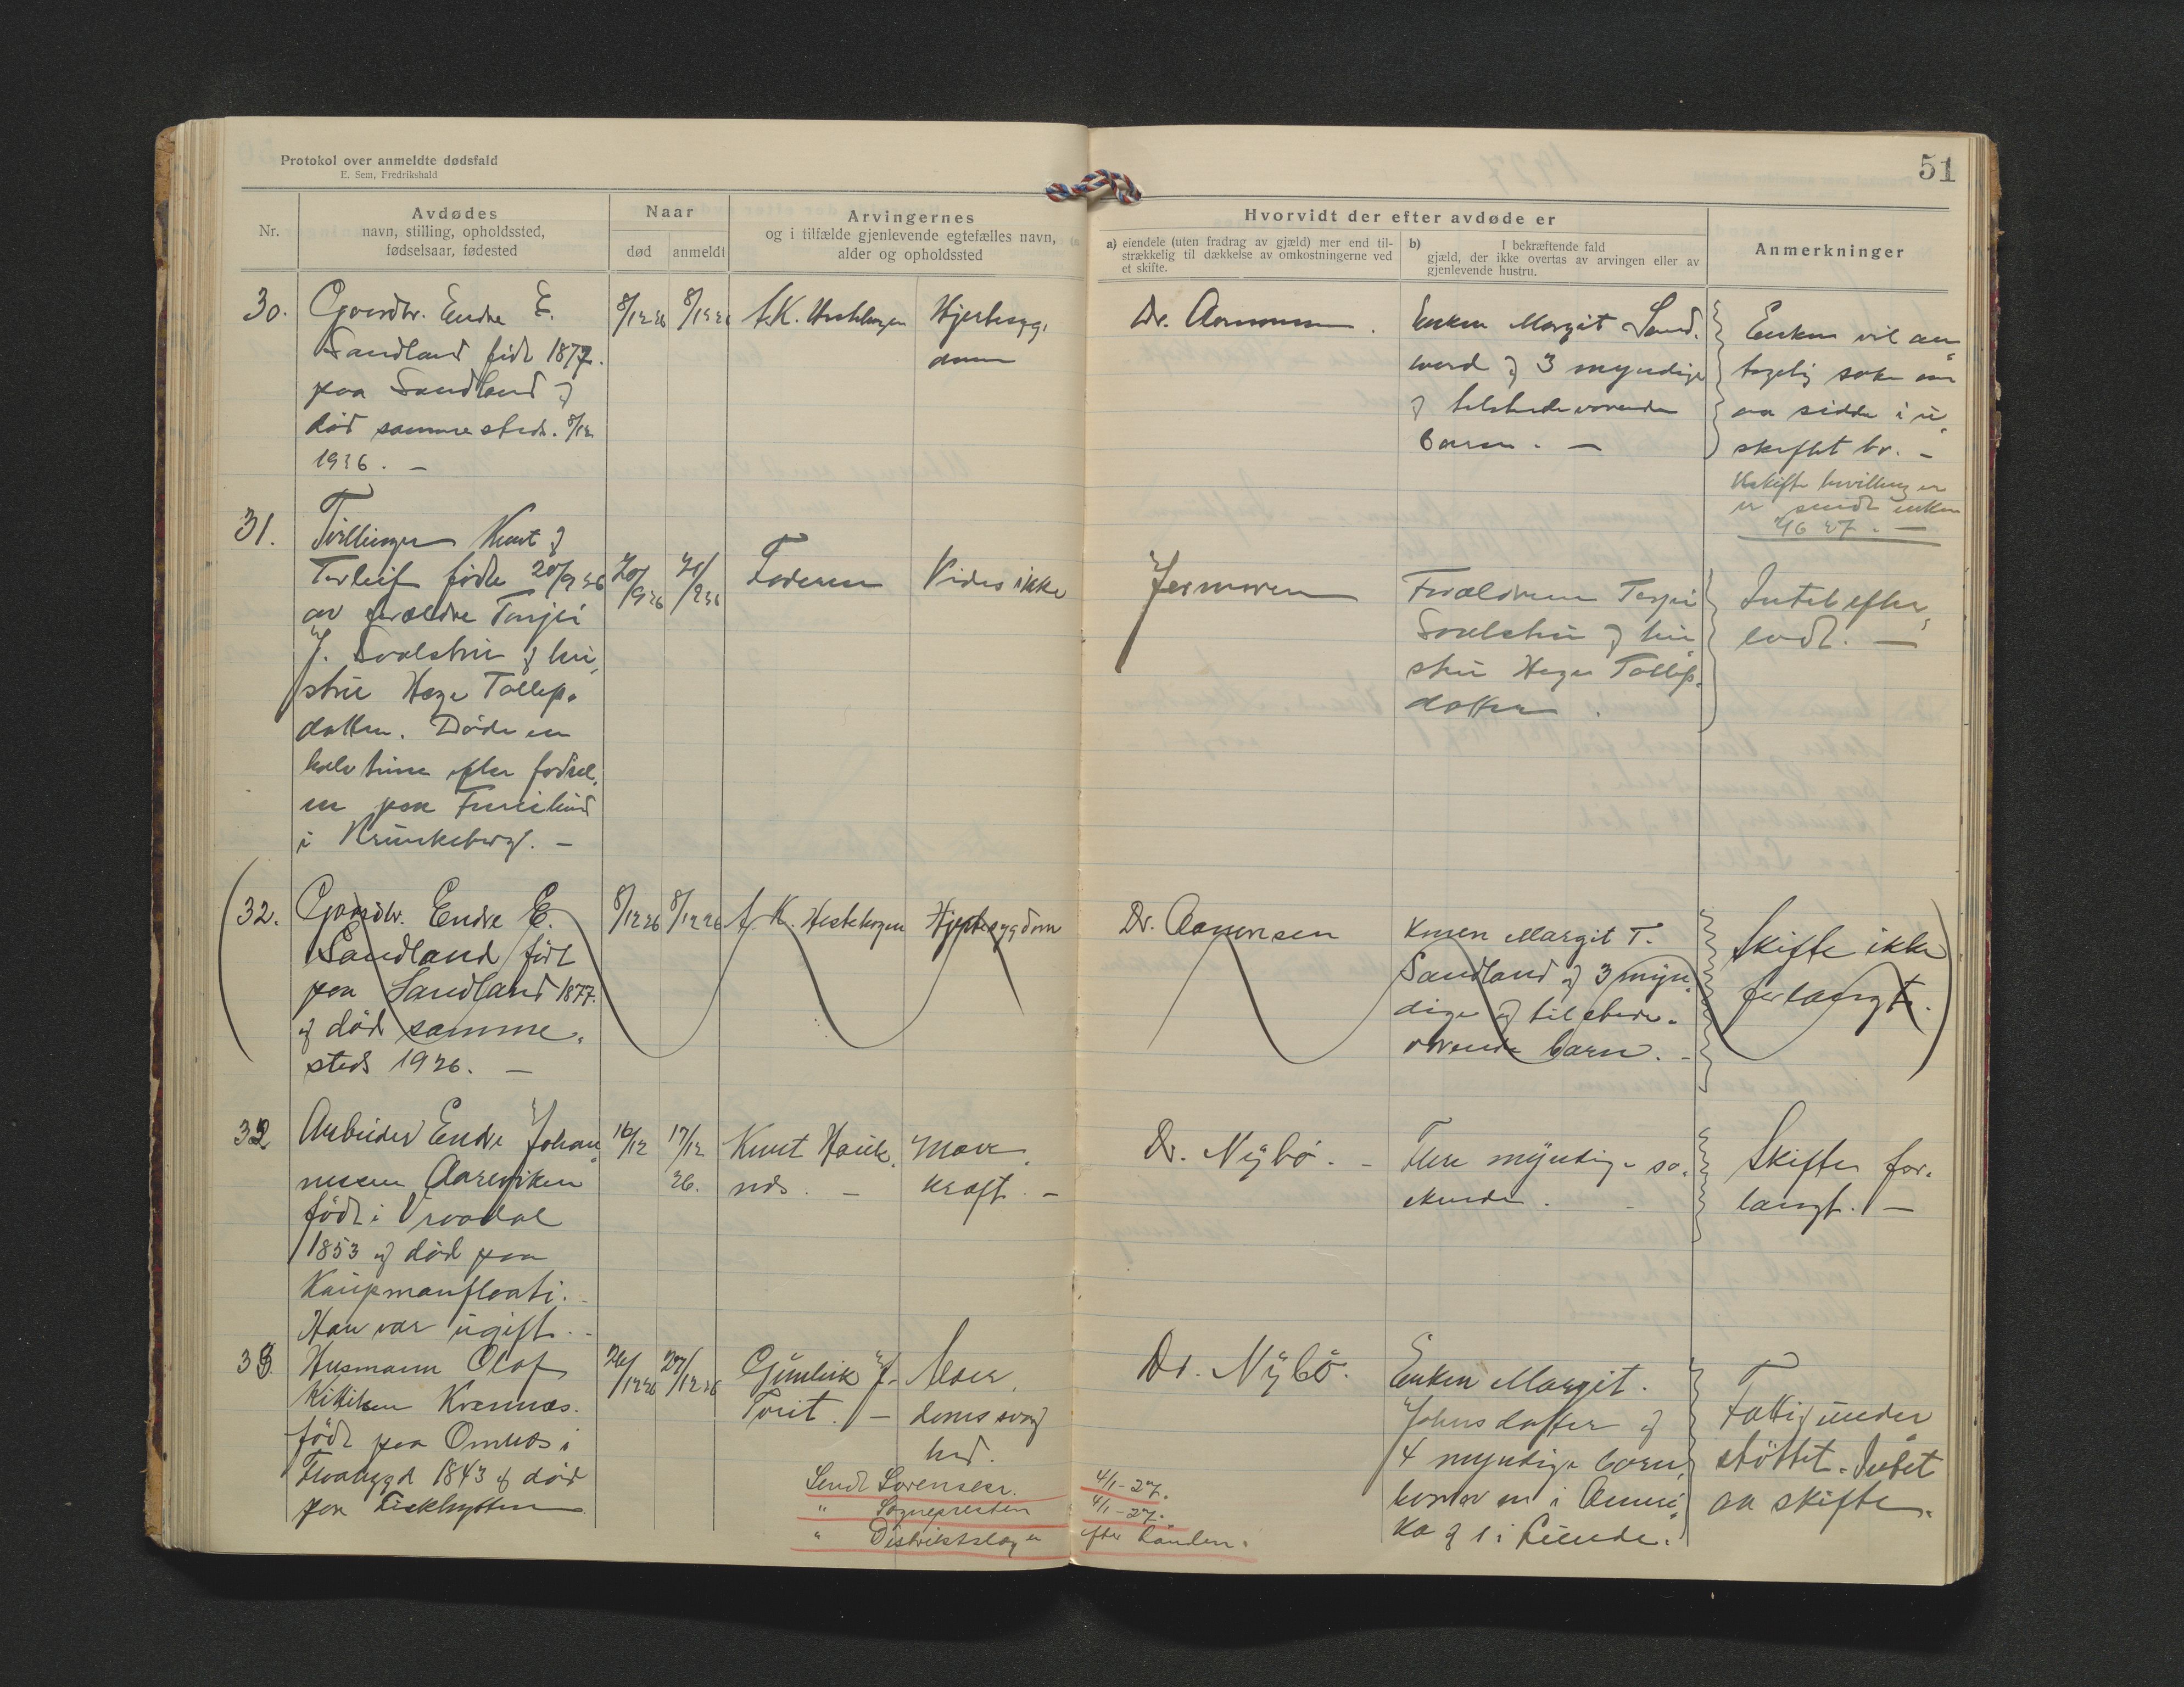 Protokol over anmeldte dødsfald
E. Sem, Fredrikshald
51
Nr.
Avdødes
navn, stilling, opholdssted,
fødselsaar, fødested
Naar
død
anmeldt
Arvingernes
og i tilfælde gjenlevende egtefælles navn,
alder og opholdssted
Hvorvidt der efter avdøde er
a) eiendele (uten fradrag av gjæld) mer end til-
strækkelig til dækkelse av omkostningerne ved
et skifte.
b) I bekræftende fald
gjæld, der ikke overtas av arvingen eller av
gjenlevende hustru.
Anmerkninger
30.
Gaardbr. Endre E.
Sandland född 1877.
paa Sandland og
död sammesteds. 8/12
1926. –
8/12 26
8/12 26
A.K. Hestehagen
Hjertesyg,
dom
Dr. Aanonsen.
Enken Margit Sand.
og 3 myndige
og tilstedeværende
barn. –
Enken vil an
tagelig söke om
aa sidde i u,
skiftet bo. –
Uskifte bevilling er
er sendt enken
27. –
31.
Tvillinger Knut og
Torleif födte 20/9 26
av foreldre Torjei
J. Soalstrie og hu,
strue Hege Tollefs.
datter. Döde en
halv time efter födsel,
en paa
i Krunkeberg. –
20/9 26
Faderen
Vides ikke
Jormoren
Forældrene Torjei
Soalstrie og hu
strue Hege Tollefs.
datter.
Intet efter,
ladt. –
32.
Gaardbr. Endre E.
Sandland född
paa Sandland 1877.
og död samme.
steds 1926. –
8/12 26
8/12 26
A. K. Hestehagen
Hjertesygdom
Dr. Aanonsen
Konen Margit T.
Sandland og 3 myn.
dige og tilstede.
værende barn. –
Skifte ikke
forlangt.
32
Arbeider Endre Johan
nesen Aarmoken
född i Vraadal
1853 og död paa
Kaupmanfloati.
Han var ugift. –
16/12
17/12
26.
Knut Hauk.
nds. –
Mave,
kræft. –
Dr. Nybö. –
Flere myndige sö.
skende. –
Skifte for.
langt. –
33.
Husmann Olaf
Kittilsen Kvernnes.
född paa Omnes i
Flaabygd 1843 og död
paa
26/12 26
27/12 26
Gunleik J.
Torit. –
Alder,
doms svag
hed.
Dr. Nybö.
Enken Margit.
Johnsdatter og
4 myndige barn,
hvorav en i Ameri,
ka og 1 i Lunde.
Fattig under
stöttet. Intet
aa skifte.
Sendt Sorenskr. 4/1-27.
" Sognepresten 4/1-27.
" Distriktslægen efter haanden.